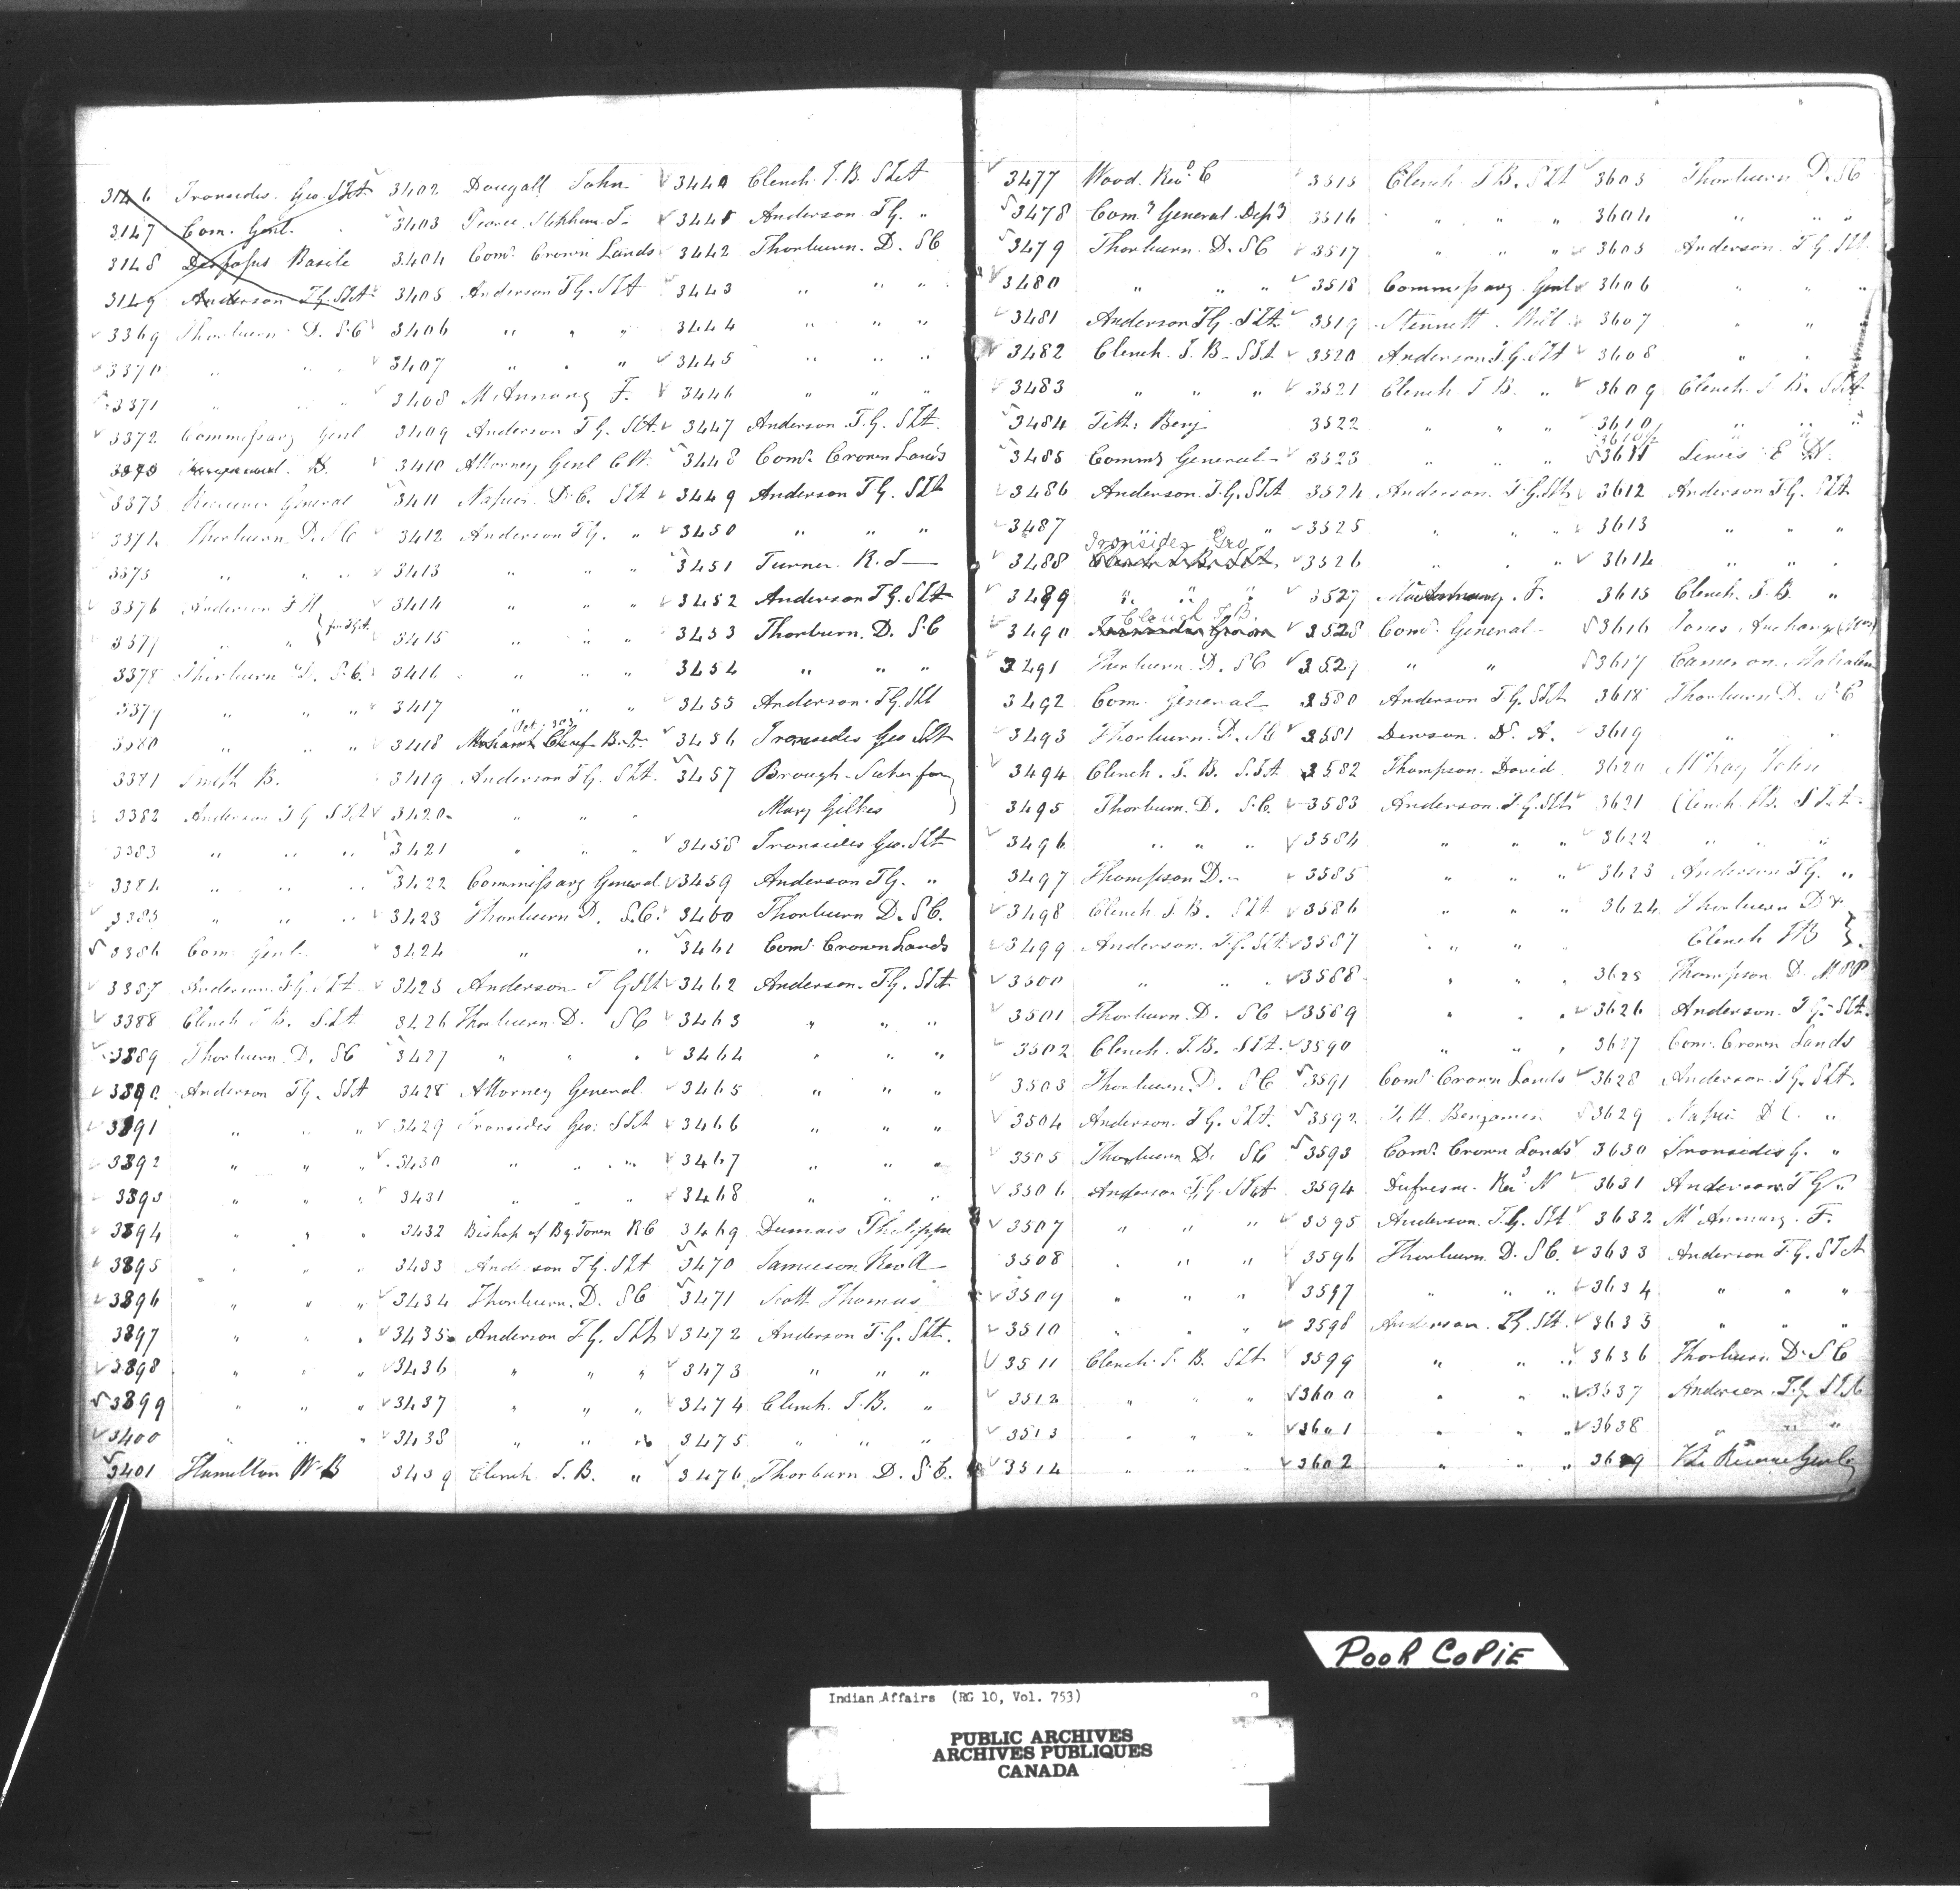 3146 Ironsides Geo. SIA
3147 Com. Genl.
3148 Basile
3149 Anderson T.G. SIA
3369 Thorburn D. S.C
3370 " " "
3371 " " "
3372 Commissary Genl
3373
3373 Receiver General
3374 Thorburn D. S.C
3375 " " "
3376 Anderson
3377 " "
3378 Thorburn D. S.C.
3379 " " "
3380 " " "
3381 Smith B.
3382 Anderson T G SIA
3383 " " "
3384 " " "
3385 " " "
3386 Com. Genl.
3387 Anderson T.G. SIA
3388 Clench J.B. SIA
3389 Thorburn D. SC
3390 Anderson T.G. SIA
3391 " " "
3392 " " "
3393 " " "
3394 " " "
3395 " " "
3396 " " "
3397 " " "
3398 " " "
3399 " " "
3400 " " "
3401 Hamilton W B
3402 Dougall John
3403 Pearce Stephen
3404 Comr. Crown Lands
3405 Anderson T.G. SIA
3406 " " "
3407 " " "
3408 McAnnany F.
3409 Anderson T G. SIA.
3410 Attorney Genl
3411 Napier D.C. SIA
3412 Anderson T.G. "
3413 " " "
3414 " " "
3415 " " "
3416 " " "
3417 " " "
3418 Mohawk Chief B.Q.
3419 Anderson T G. SIA.
3420 " " "
3421 " " "
3422 Commissary General
3423 Thorburn D. S.C.
3424 " "
3425 Anderson T G SIA
3426 Thorburn D. SC
3427 " " "
3428 Attorney General
3429 Ironsides Geo. SIA
3430 " " "
3431 " " "
3432 Bishop of By Town RC
3433 Anderson T G. SIA
3434 Thorburn. D. SC
3435 Anderson T G. SIA
3436 " " "
3437 " " "
3438 " " "
3439 Clench J.B. "
3440 Clench. J.B. SIA
3441 Anderson T G. "
3442 Thorburn. D. SC
3443 " " "
3444 " " "
3445 " " "
3446 " " "
3447 Anderson T.G. SIA.
3448 Comr. Crown Lands
3449 Anderson T G. SIA
3450 " " "
3451 Turner. R. J
3452 Anderson T G. SIA
3453 Thorburn. D. S.C
3454 " " "
3455 Anderson. T G. SIA
3456 Ironsides Geo SIA
3457 Brough. Secker for
Mary Gilkes
3458 Ironsides Geo. SIA
3459 Anderson T G. "
3460 Thorburn D. SC.
3461 Comr. Crown Lands
3462 Anderson. T G. SIA
3463 " " "
3464 " " "
3465 " " "
3466 " " "
3467 " " "
3468 " " "
3469 Dumais Philippe
3470 Jamieson
3471 Scott Thomas
3472 Anderson T.G. SIA.
3473 " " "
3474 Clench. J.B. "
3475 " " "
3476 Thorburn D. S.C.
3477 Wood Revd. C
3478 Comy. General Dept
3479 Thorburn. D. SC
3480 " " "
3481 Anderson T G. SIA
3482 Clench. J. B. SIA
3483 " " "
3484 Tett. Benj
3485 Commy General
3486 Anderson. T.G. SIA
3487 " "
Ironsides Geo
3488 Clench J.B. SIA
3489 " " "
Clench J.B.
3490
3491 Thorburn. D. SC
3492 Com. General
3493 Thorburn. D. SC
3494 Clench. J. B. SIA
3495 Thorburn. D. SC.
3496 " " "
3497 Thompson D.
3498 Clench J.B. SIA
3499 Anderson. T.G. SIA
3500 " " "
3501 Thorburn. D. SC
3502 Clench. J.B. SIA.
3503 Thorburn. D. SC
3504 Anderson. T.G. SIA.
3505 Thorburn D. SC
3506 Anderson T.G. SIA
3507 " " "
3508 " " "
3509 " " "
3510 " " "
3511 Clench. J. B. SIA
3512 " " "
3513 " " "
3514 " " "
3515 Clench. J B. SIA
3516 " " "
3517 " " "
3518 Commissary Genl
3519 Stennett
3520 Anderson T.G. SIA
3521 Clench. J B. "
3522 " " "
3523 " " "
3524 Anderson. T.G. SIA
3525 " " "
3526 " " "
3527 McAnnany. F.
3528 Comy. General
3529 " "
3580 Anderson T G. SIA
3581 Dewson. D. A.
3582 Thompson David
3583 Anderson. T.G. SIA
3584 " " "
3585 " " "
3586 " " "
3587 " " "
3588 " "
3589 " " "
3590 " " "
3591 Comr. Crown Lands
3592 Tett. Benjamin
3593 Comr. Crown Lands
3594 Dufresne. Revd N
3595 Anderson. T.G. SIA
3596 Thorburn D. SC.
3597 " " "
3598 Anderson. T.G. SIA.
3599 " " "
3600 " " "
3601 " " "
3602 " " "
3603 Thorburn D. SC
3604 " " "
3605 Anderson. T G. SIA
3606 " " "
3607 " "
3608 " "
3609 Clench. J B. SIA
3610 " " "
3610 1/2 " "
3611 Lewis E
3612 Anderson T G. SIA
3613 " " "
3614 " " "
3615 Clench. J.B. "
3616 Jones
3617 Cameron Malcolm
3618 Thorburn D. SC
3619 " "
3620 McKay John
3621 Clench. J.B. SIA
3622 " " "
3623 Anderson T G. "
3624 Thorburn D &
Clench J B
3625 Thompson D. M P P
3626 Anderson. T G. SIA.
3627 Comr. Crown Lands
3628 Anderson. T.G. SIA.
3629 Napier D C. "
3630 Ironsides G. "
3631 Anderson T G "
3632 McAnnany. F.
3633 Anderson T.G. SIA
3634 " " "
3635 " " "
3636 Thorburn D. S C
3637 Anderson. T.G. SIA
3638 " " "
3639
POOR COPIE
Indian Affairs (RG 10, Vol. 753)
PUBLIC ARCHIVES
ARCHIVES PUBLIQUES
CANADA